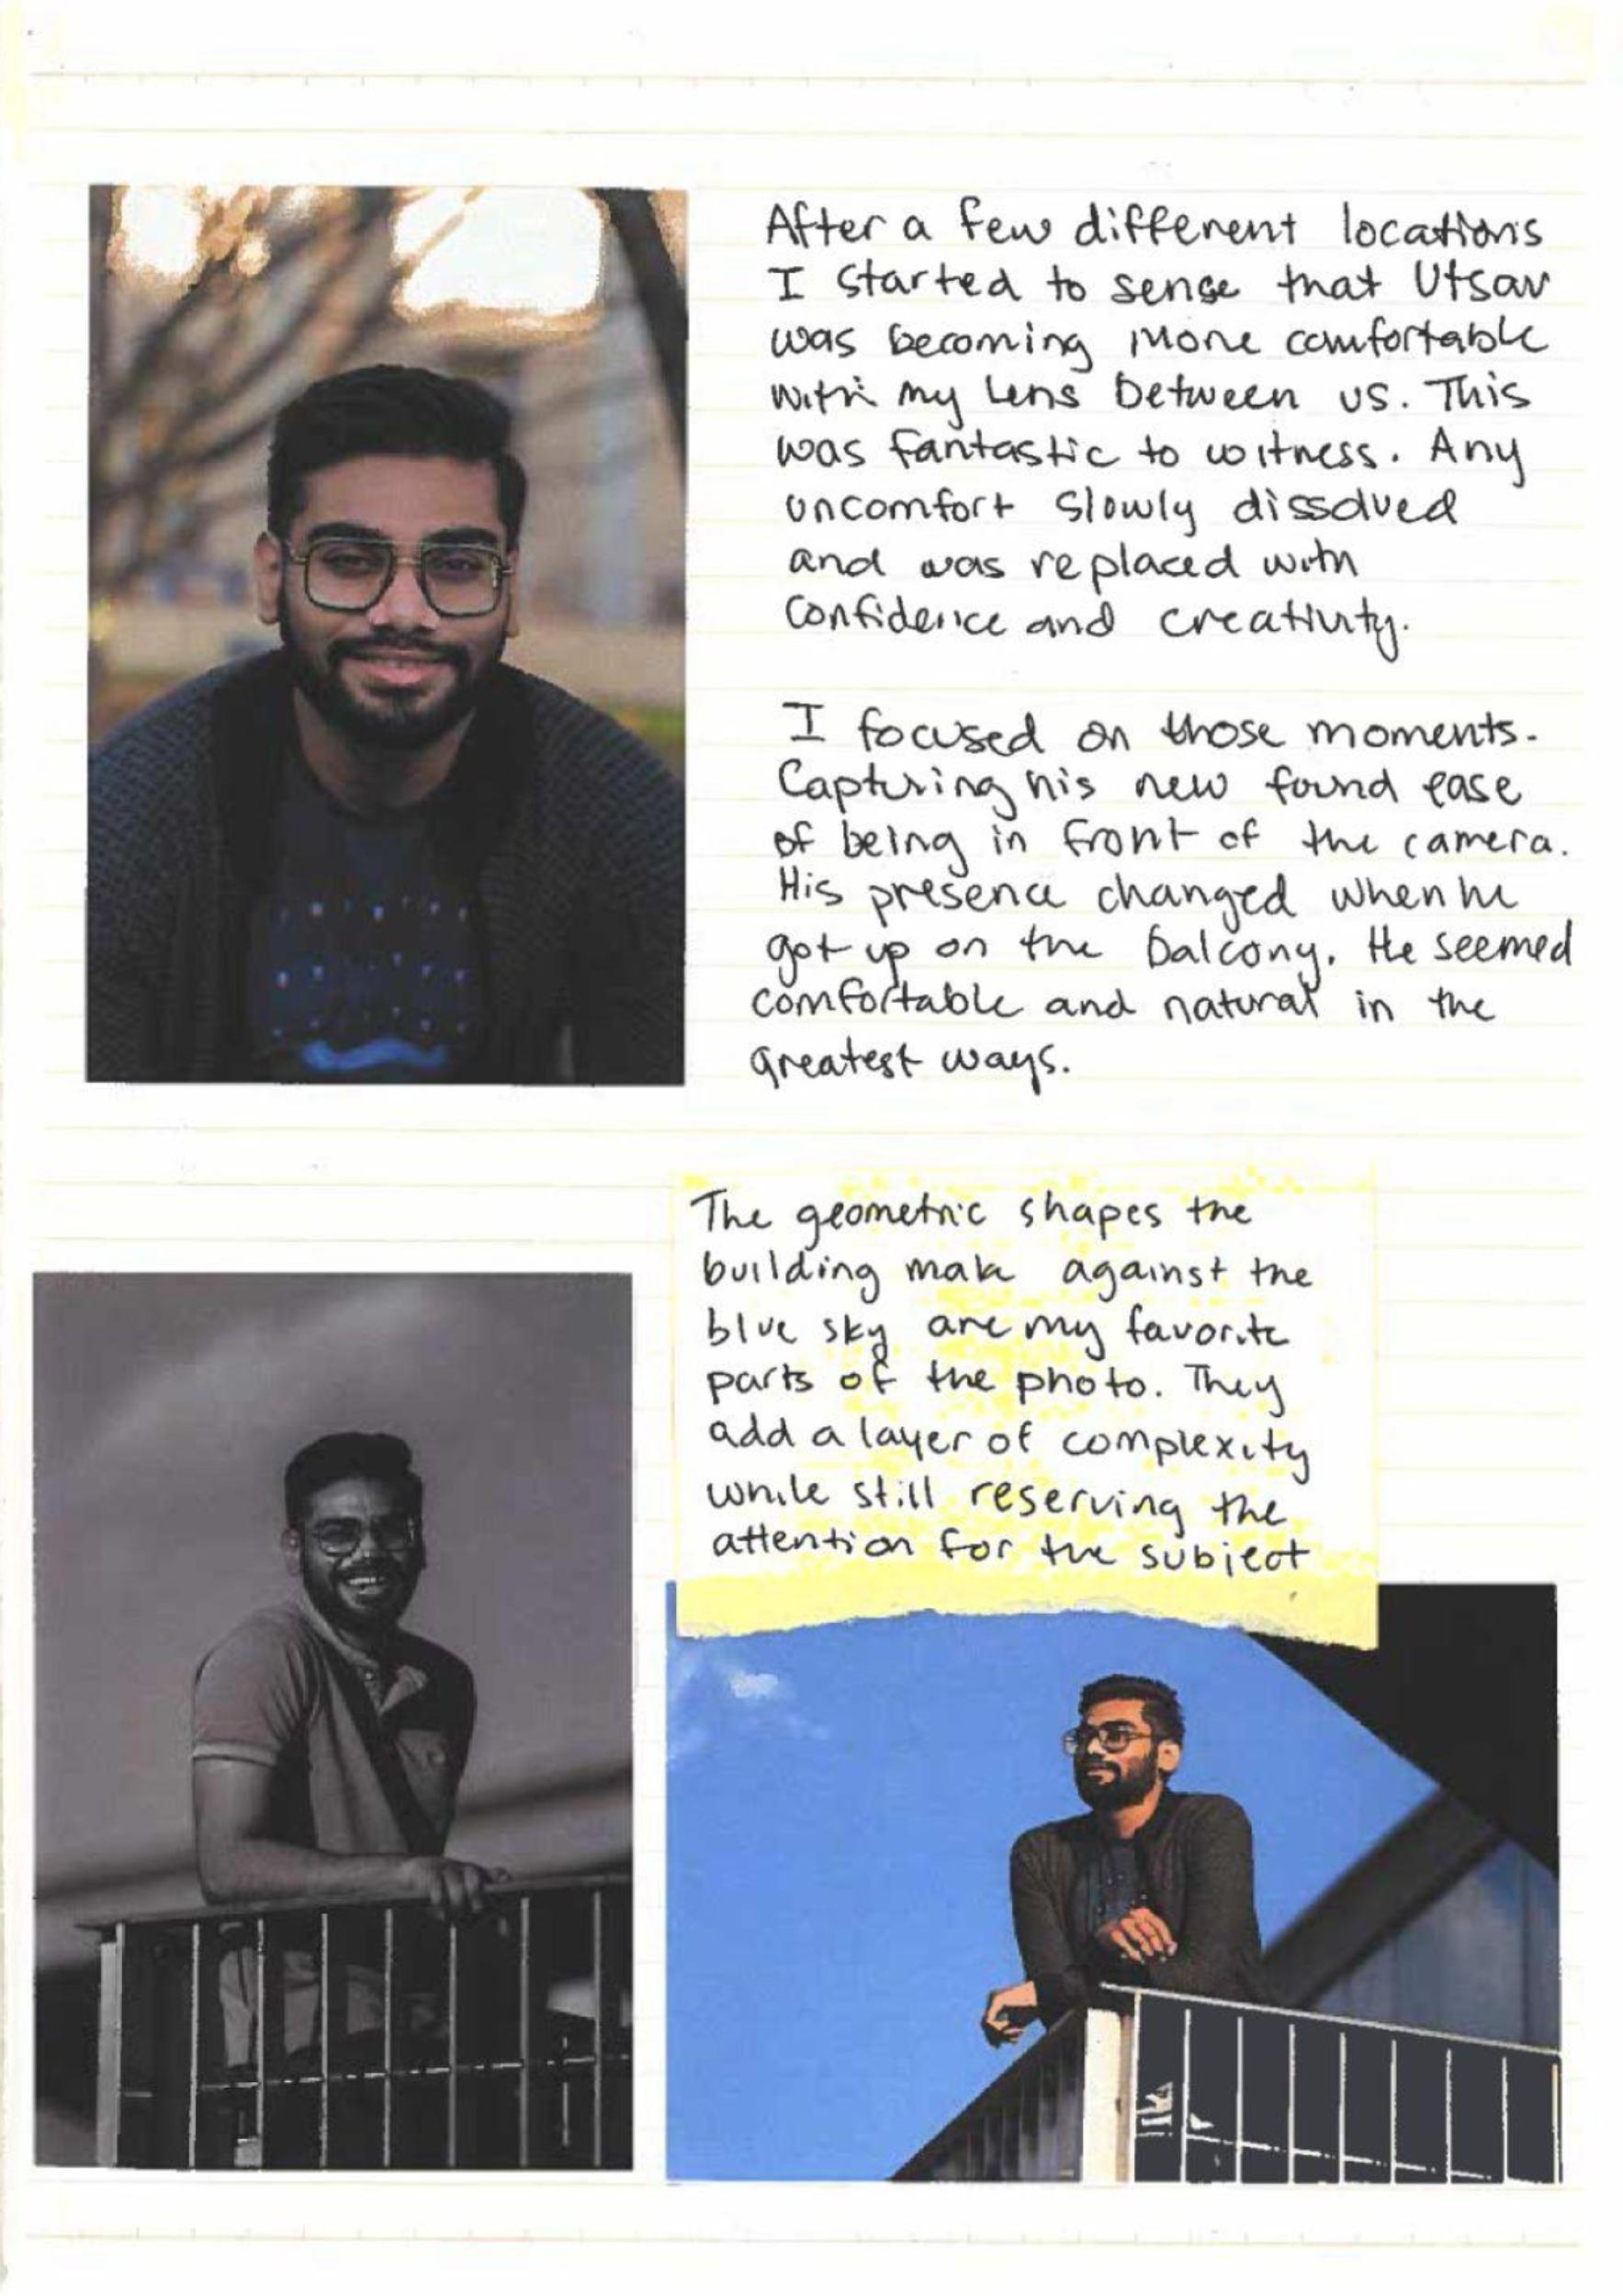 After a few different locations
I started to sense that Utsav
was becoming more comfortable
with my lens between us. This
was fantastic to witness. Any
uncomfort slowly dissolved
and was replaced with
confidence and creativity.
I focused on those moments.
Capturing his new found ease
of being in front of the camera.
His presence changed when he
got up on the balcony. He seemed
comfortable and natural in the
greatest ways.
The geometric shapes the
building make against the
blue sky are my favorite
parts of the photo. They
add a layer of complexity
while still reserving the
attention for the subject